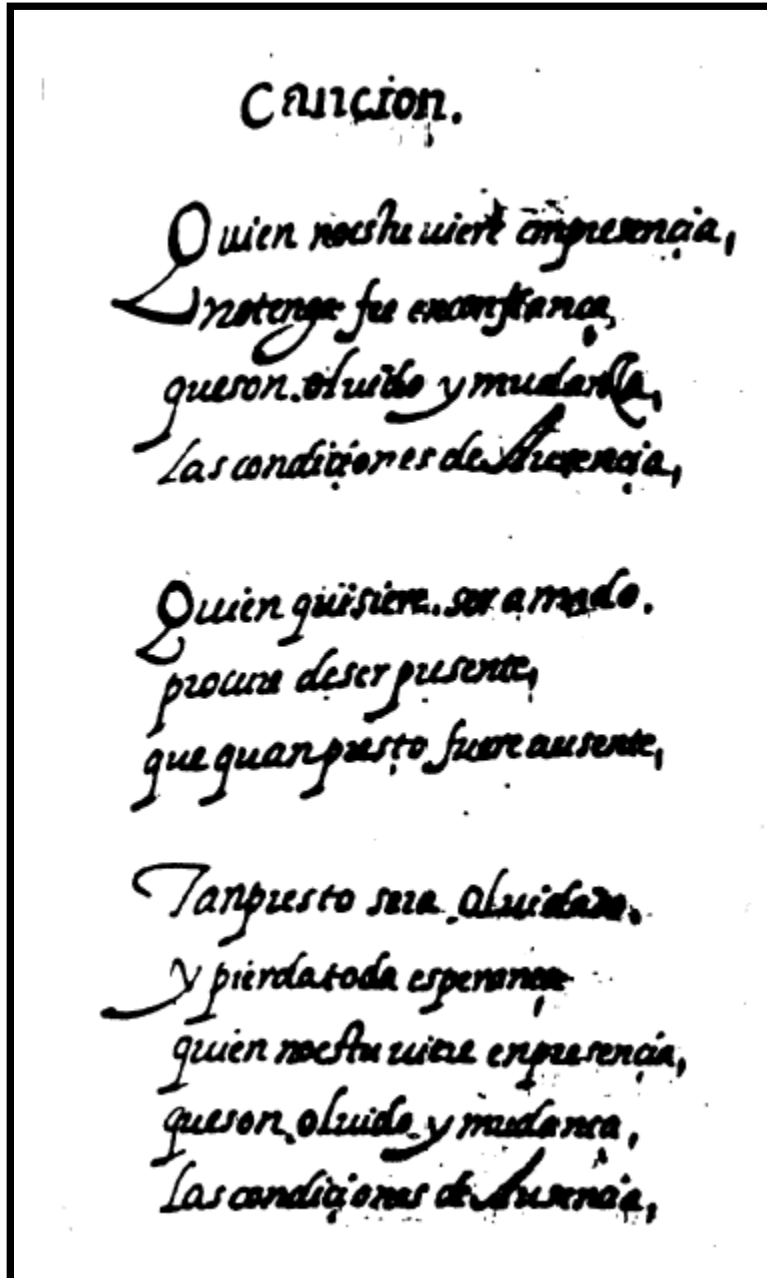 Cançion.
Quien no estuuiere en presençia,
no tenga fee en confiança,
que son oluido y mudança,
Las condiçiones de Ausençia,
Quien quisiere ser amado.
procure de ser presente,
que quan presto fuere ausente,
Tan presto sera oluidado.
y pierda toda esperança
quien no estuuiere en presençia,
que son oluido y mudança,
Las condiçiones de Ausençia,